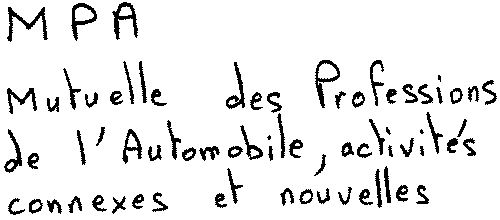 MPA
Mutuelle des Professions
de l'Automobile, activités
connexes et nouvelles